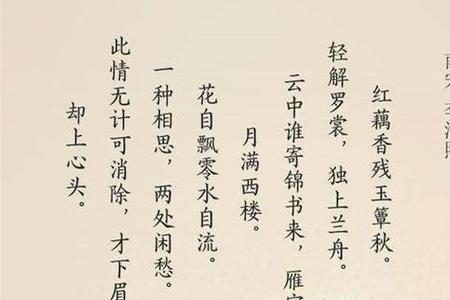 红藕香残玉簟秋。
轻解罗裳，独上兰舟。
云中谁寄锦书来，雁字
月满西楼。
花自飘零水自流。
一种相思，两处闲愁。
此情无计可消除，才下眉
却上心头。